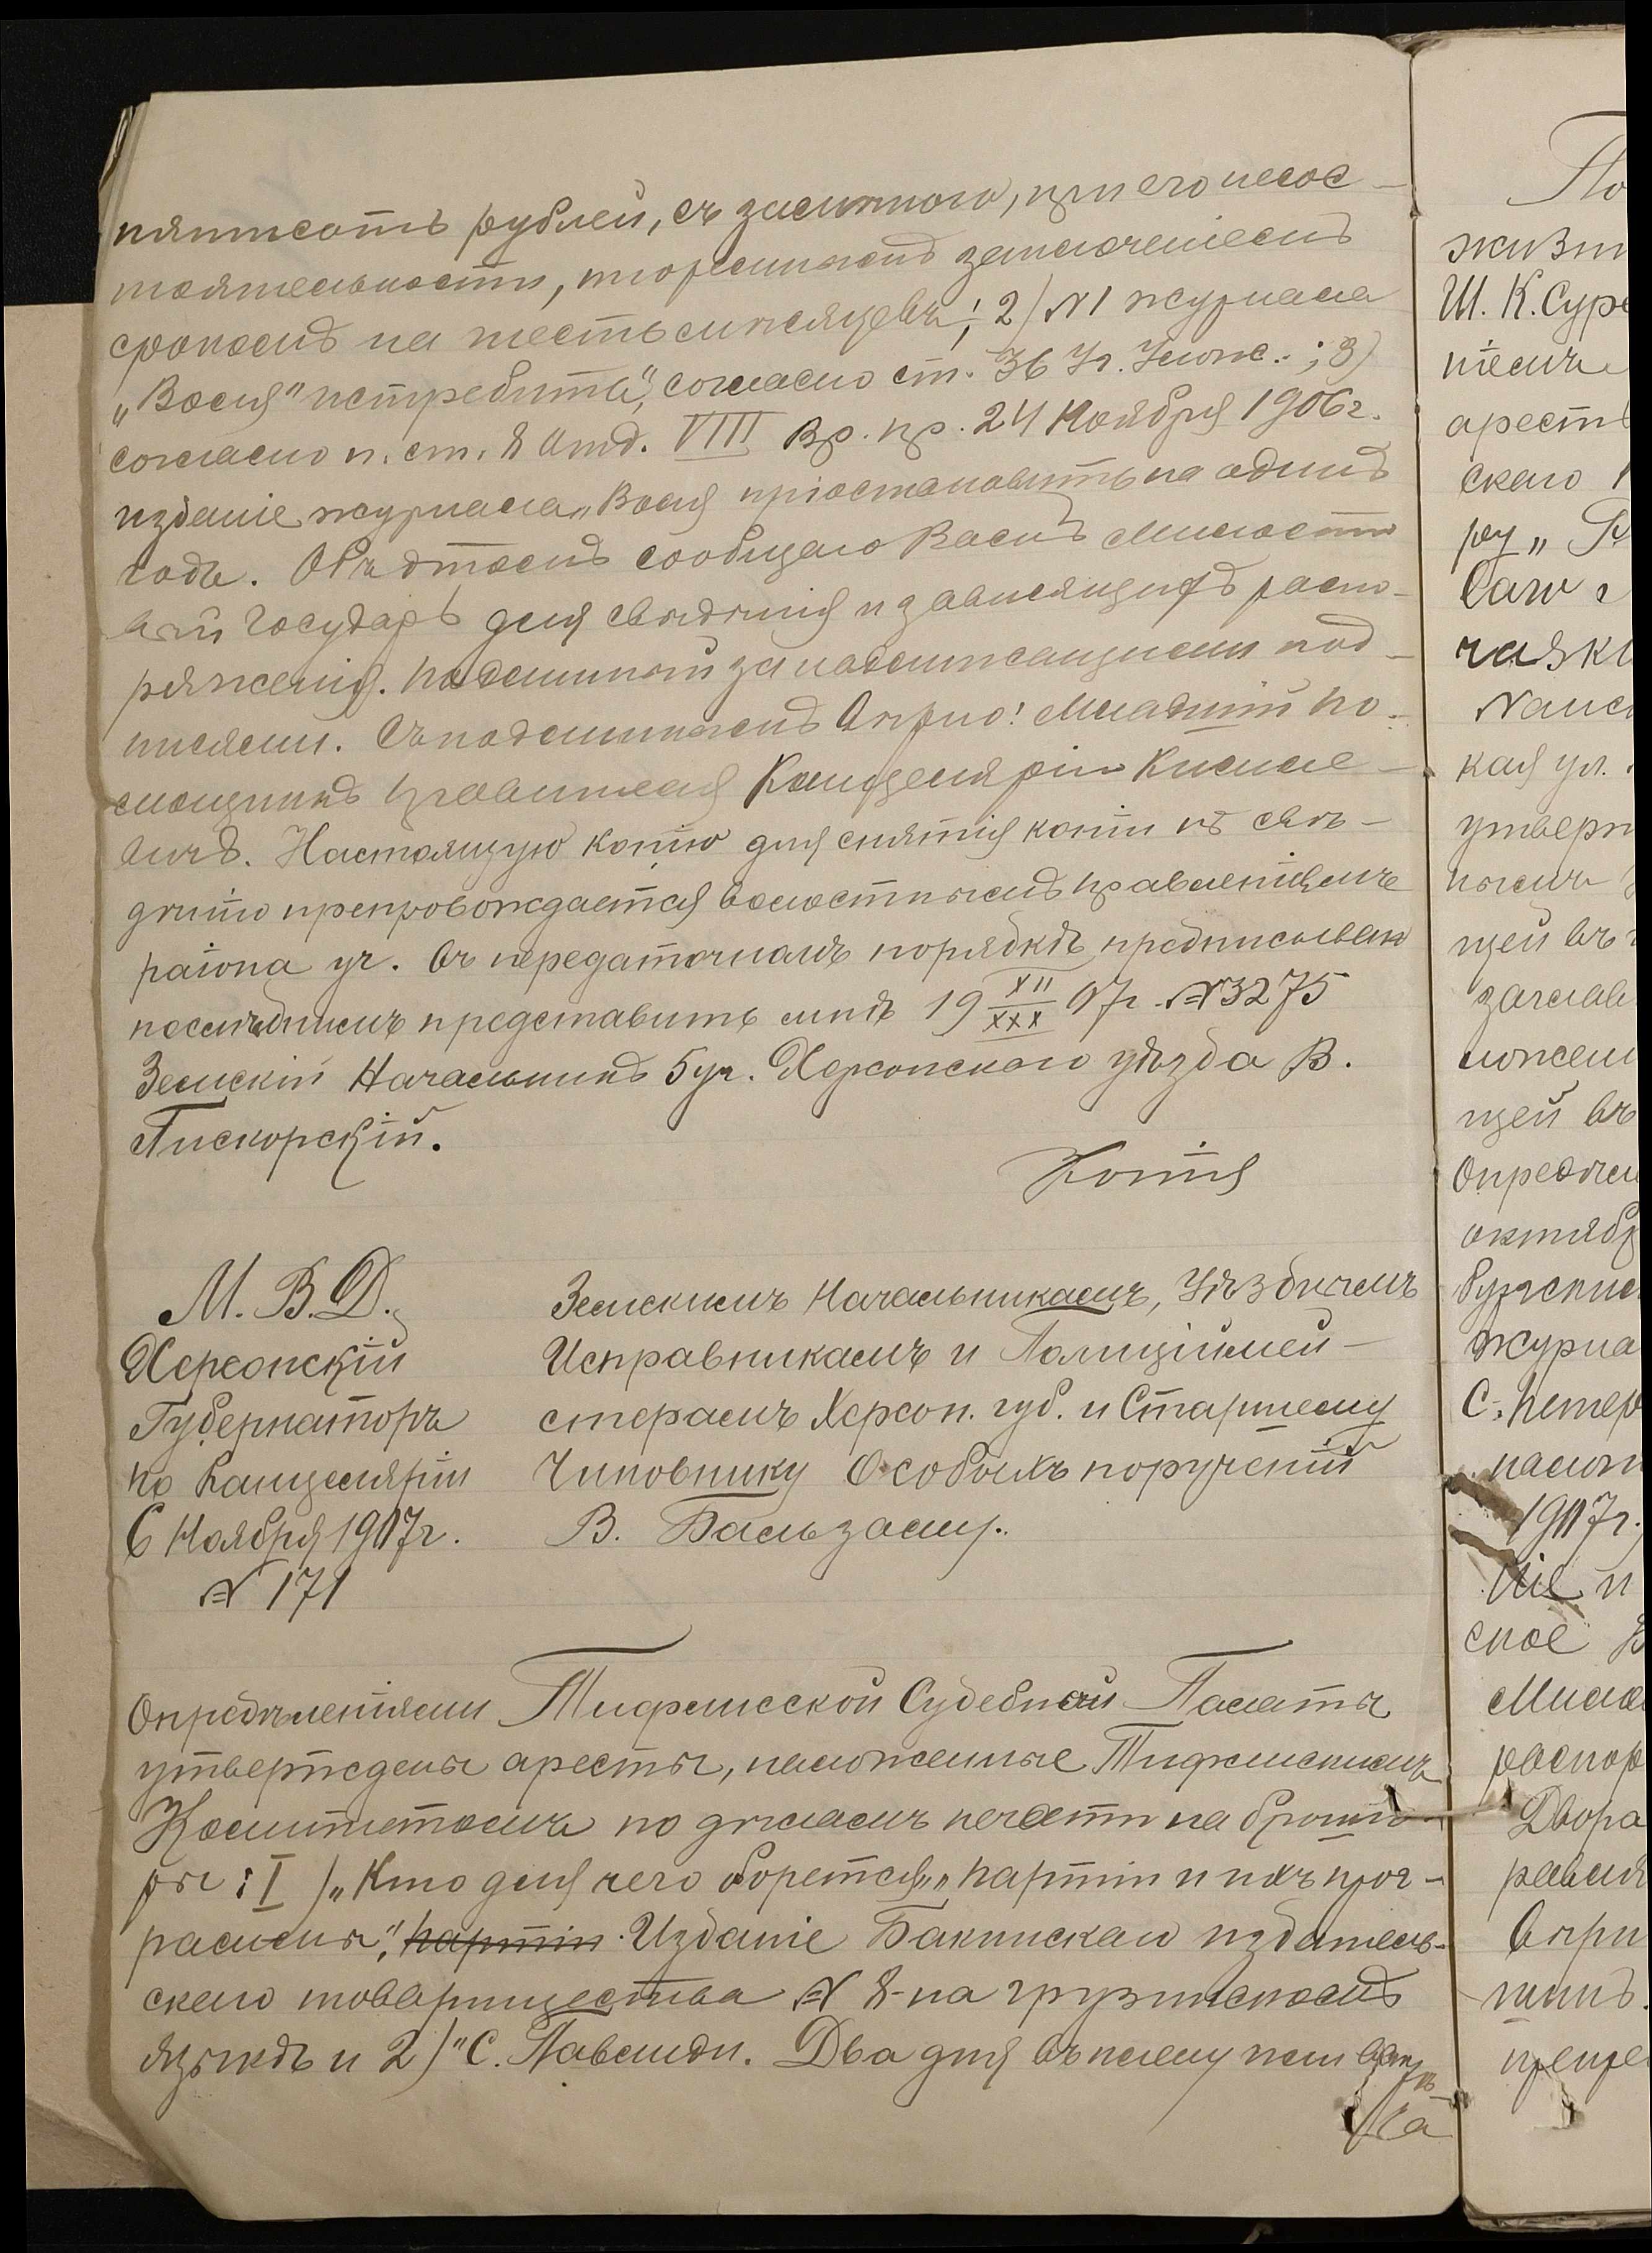 пятисотъ рублей, съ замѣною, при его несос-
тоятельности, тюремнымъ заключеніемъ
срокомъ на шесть мѣсяцевъ; 2) № 1 журнала
„Воля" истребить, согласно ст. 36 Уг. Улож.; 3)
согласно п. ст. 8 Отд. VIII Вр. пр. 24 Ноября 1906 г.
изданіе журнала „Воля пріостановить на одинъ
годъ. Объ этомъ сообщаю Вамъ Милости
вый Государь для свѣдѣнія и зависящихъ распо-
ряженія. Подлинный за надлежащими под-
писями. Съ подлиннымъ вѣрно: Младшій По-
мощникъ Правителя Канцеляріи Кисиле-
вичъ. Настоящую копію для снятія копіи къ свѣ-
дѣнію препровождается волостнымъ правленіямъ
района уч. въ передаточномъ порядкѣ предписываю
послѣднимъ представить мнѣ 19 XII/XXX 07 г. № 3275
Земскій Начальникъ 5 уч. Херсонскаго уѣзда В.
Пискорскій.
Копія
М. В. Д.
Херсонскій
Губернаторъ
по Канцеляріи
6 Ноября 1907 г.
№ 171
Земскимъ Начальникамъ, Уѣзднымъ
Исправникамъ и Полиціймей-
стерамъ Херсон. губ. и Старшему
Чиновнику Особыхъ порученій
В. Бальзаму.
Опредѣленіями Тифлисской Судебной Палаты
утверждены аресты, наложенные Тифлискимъ
Комитетомъ по дѣламъ печати на брошю-
ры: I) „Кто для чего борется„ „партіи и ихъ прог-
раммы", партіи. Изданіе Бакинскаго издатель-
скаго товарищества № 8 - на грузинскомъ
языкѣ и 2) "С. Павлиди. Два дня въ плену
ка
По
жизн
Ш. К. Суре
ніемъ
арест
скаго
ру „
Наис
кая ул.
утверж
нымъ
щей въ
заглав
ложен
щей въ
Опредѣле
октябр
бургским
журна
С. Петер
налож
1907 г.
ніе и
ское
Милос
распор
Двора
равля
вѣрн